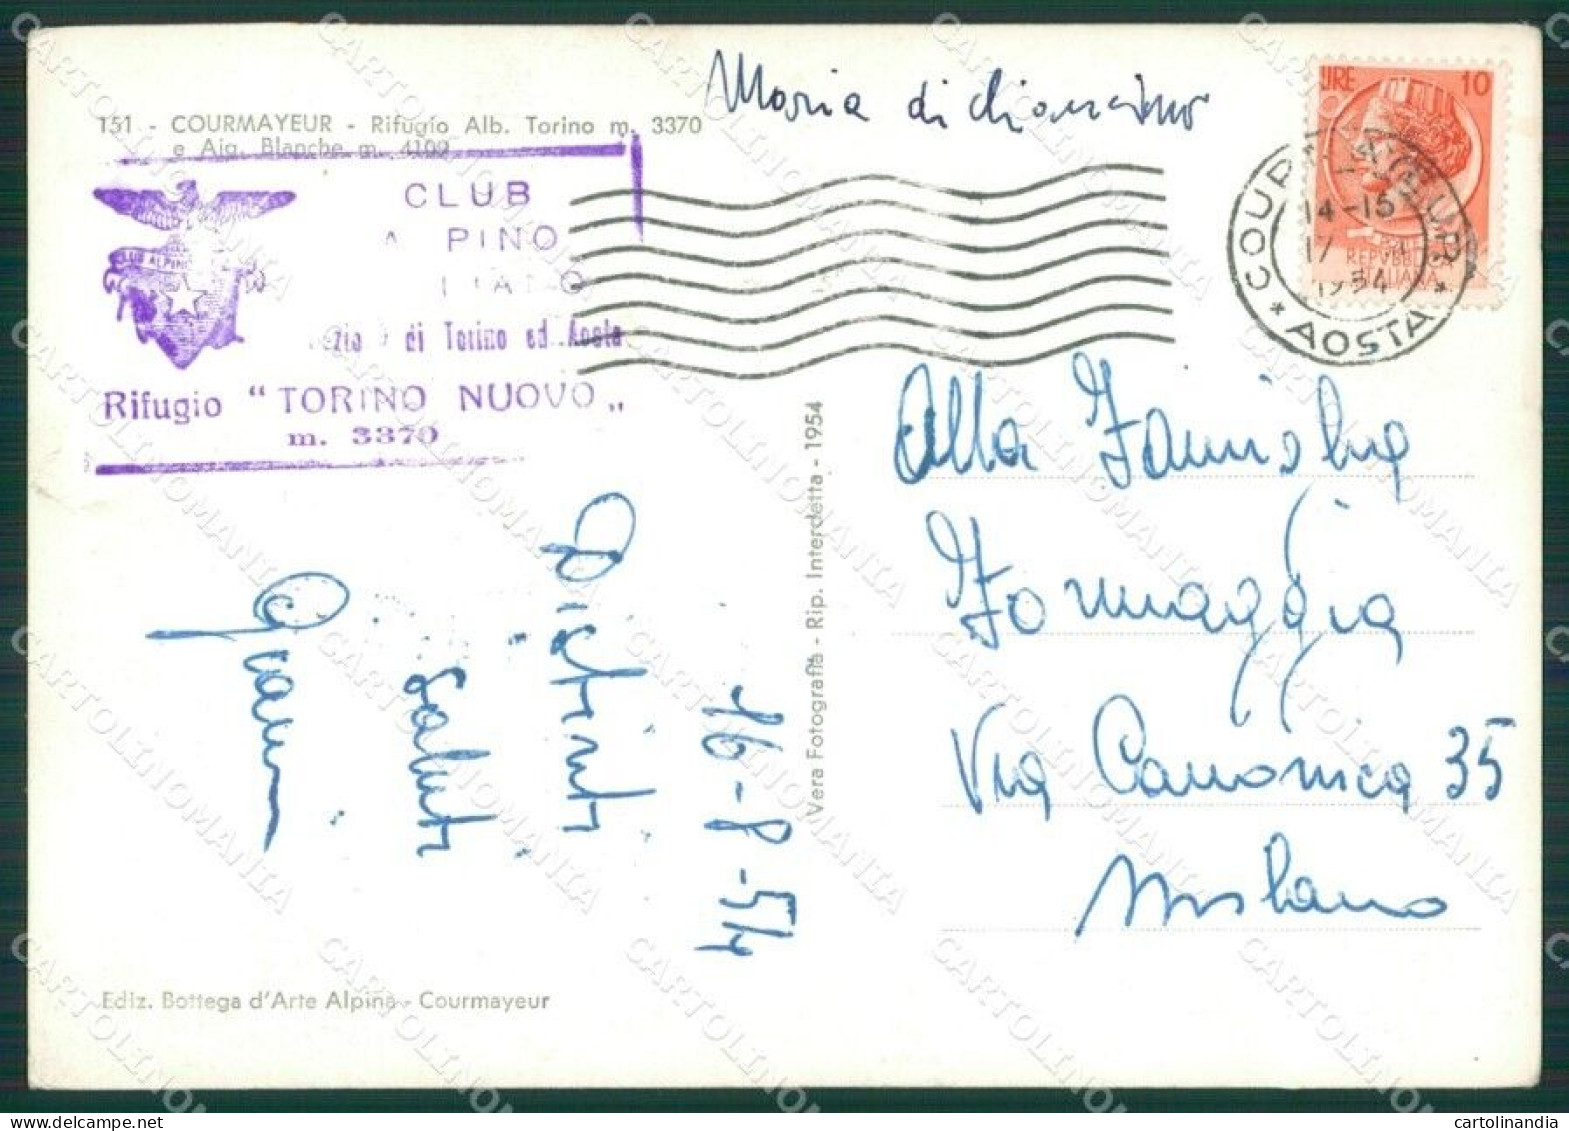 151 - COURMAYEUR - Rifugio Alb. Torino m. 3370
e Aig. Blanche m. 4109
CLUB
A PINO
CLUB ALPINO
di Torino ed Aosta
Rifugio "TORINO NUOVO„
m. 3370
Maria di
LIRE 10
REPVBBLICA
ITALIANA
COURMAYEUR
14-15
17
1954
* AOSTA *
Alla Famiglia
Formaggia
Via Canonica 35
Milano
16-8-54
Distinti
Saluti
Vera Fotografia - Rip. Interdetta - 1954
Ediz. Bottega d'Arte Alpina - Courmayeur
CARTOLINOMANIA
cartolinandia